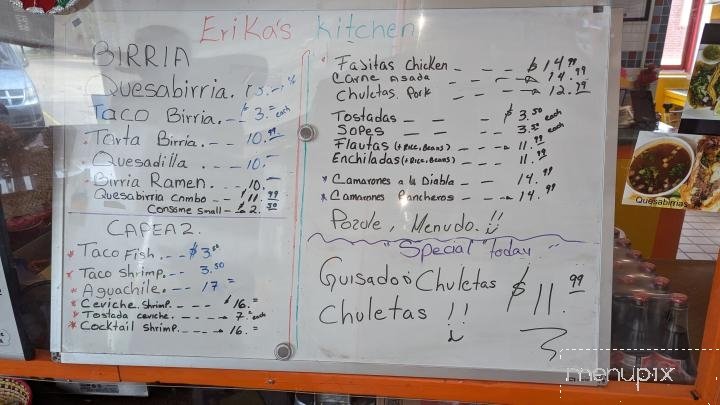 Erika's Kitchen
BIRRIA
Quesabirria.
Taco Birria. -- $3.= each
Torta Birria. -- 10.99
Quesadilla -- 10.-
Birria Ramen. -- 10.-
Quesabirria combo -- $11.99
Consome small -- $2.50
CAPEA2.
Taco Fish. -- $3.50
Taco shrimp. -- 3.50
Aguachile. -- 17.=
Ceviche shrimp. --- $16.=
Tostada ceviche. --- 7.= each
Cocktail shrimp. --- 16.=
Fajitas Chicken --- $14.99
Carne Asada --- 14.99
Chuletas Pork --- 12.99
Tostadas -- -- $3.50 each
Sopes -- -- 3.50 each
Flautas (+Rice, Beans) --- 11.99
Enchiladas (+Rice, Beans) --- 11.99
Camarones a la Diabla -- 14.99
Camarones Rancheros --- 14.99
Pozole, Menudo. !!
"Special Today"
Guisado: Chuletas $11.99
Chuletas !!
Quesabirrias
menupix